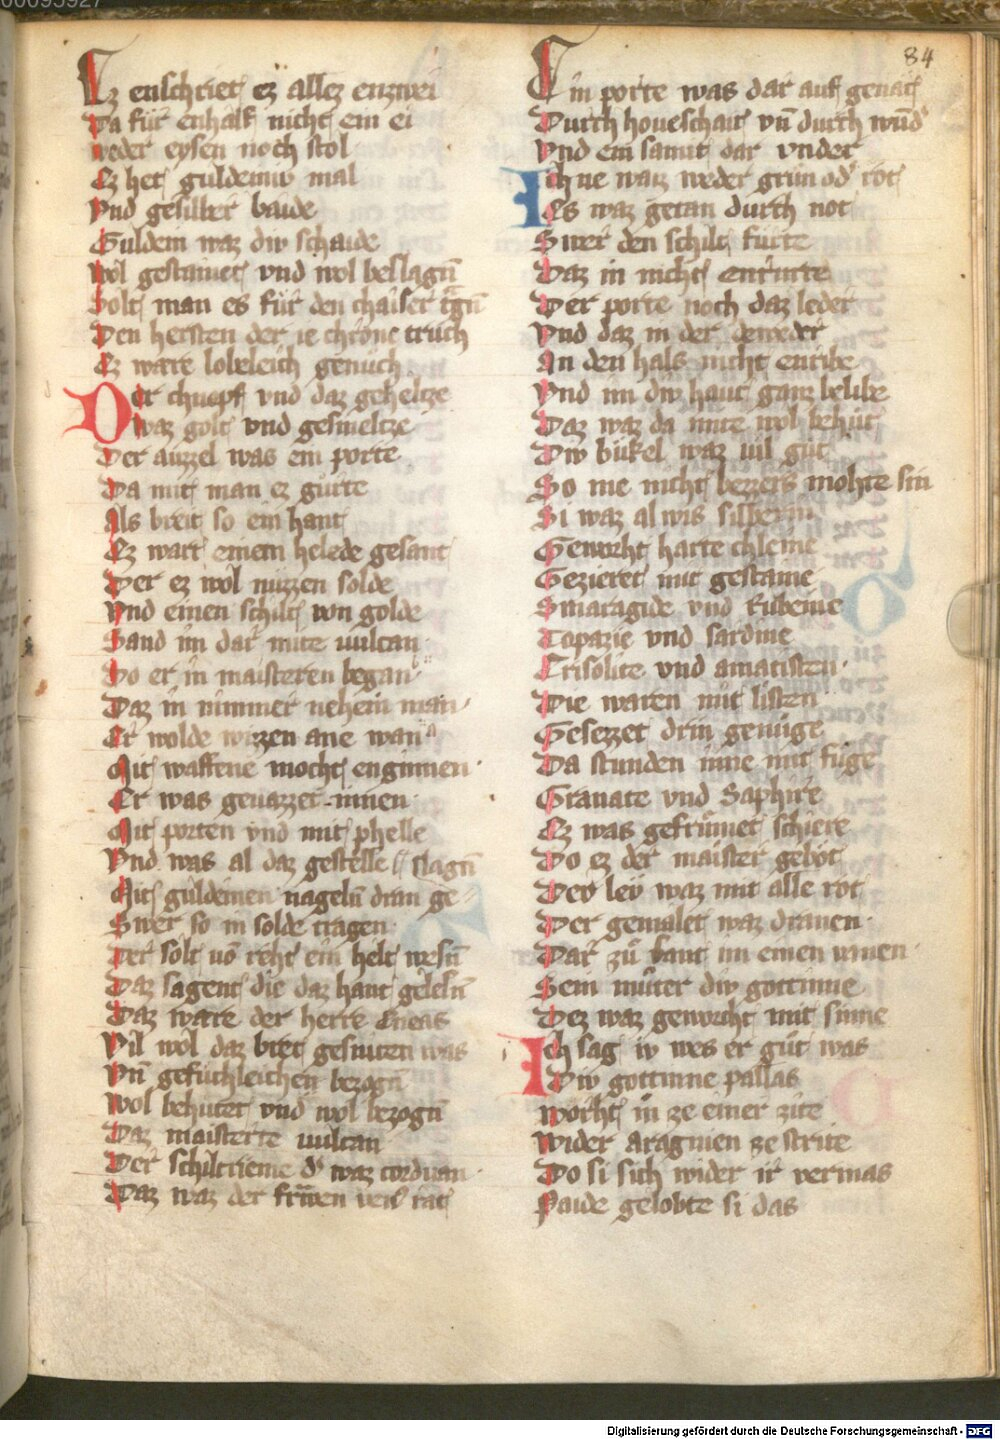 84
Ez enschriet ez allez enzwei
Da für enhalf nicht ein ei
weder eysen noch stol
Ez het guldeiniv mal
Vnd gesilber baide
Guldein waz div schaide
Wol gestainet vnd wol beslagn̄
Solt man es für den chaiser tragn̄
Den hersten der ie chrone truch
Ez ware lobeleich genuch
Der chnopf vnd daz geheltze
waz golt vnd gesmeltze
Der auzzel was ein porte
Da mit man ez gurte
Als breit so ein hant
Ez wart einem helede gesant
Der ez wol nuzzen solde
Vnd einen schilt von golde
Sand im dar mite uulcan
Do er in maisteren began
Daz in nimmer nehein man
Er wolde wizzen ane wan
Mit waffene mocht engimmen
Er was geuazzet innen
Mit porten vnd mit phelle
Vnd was al daz gestelle
Mit guldeinen nageln̄ dran ge=slagn̄
Swer so in solde tragen
Der solt uō reht ein helt wesn̄
Daz sagent die daz hant gelesn̄
Daz ware der herre Eneas
Vil wol daz bret gesniten was
Vn̄ gefuchleichen bezogn̄
Wol behutet vnd wol bezogn̄
Daz maisterte uulcan
Der schiltrieme d' waz corduan
Daz waz der frawen ven' rat
Ein porte was dar auf genat
Durch houeschait vn̄ durch wūd'
Vnd ein samit dar vnder
Ich ne waiz weder grun od' rot
Es waz getan durch not
Swer den schilt furte
Daz in nicht enrurte
Der porte noch daz leder
Vnd daz in der deweder
An den hals nicht enribe
Vnd im div haut ganz belibe
Daz waz da mite wol behut
Div bukel waz uil gut
So nie nicht bezzers mohte sin
Si waz al wis silberin
Geworht harte chleine
Gezieret mit gestaine
Smaragide vnd Rubeine
Topazie vnd sardine
Crisolite vnd amatisten
Die waren mit listen
Gesezzet drin genuge
Da stunden inne mit fuge
Granate vnd Saphire
Ez was gefrumet schiere
Do ez der maister gebot
Der lev waz mit alle rot
Der gemalet waz dranen
Dar zu bant im einen vanen
Sein muter div gottinne
Dez waz geworcht mit sinne
Ich sag iv wes er gut was
Div gottinne pallas
Worht in ze einer zite
Wider aragnien ze strite
Do si sich wider ir vermas
Paide gelobte si das
Digitalisierung gefördert durch die Deutsche Forschungsgemeinschaft - DFG